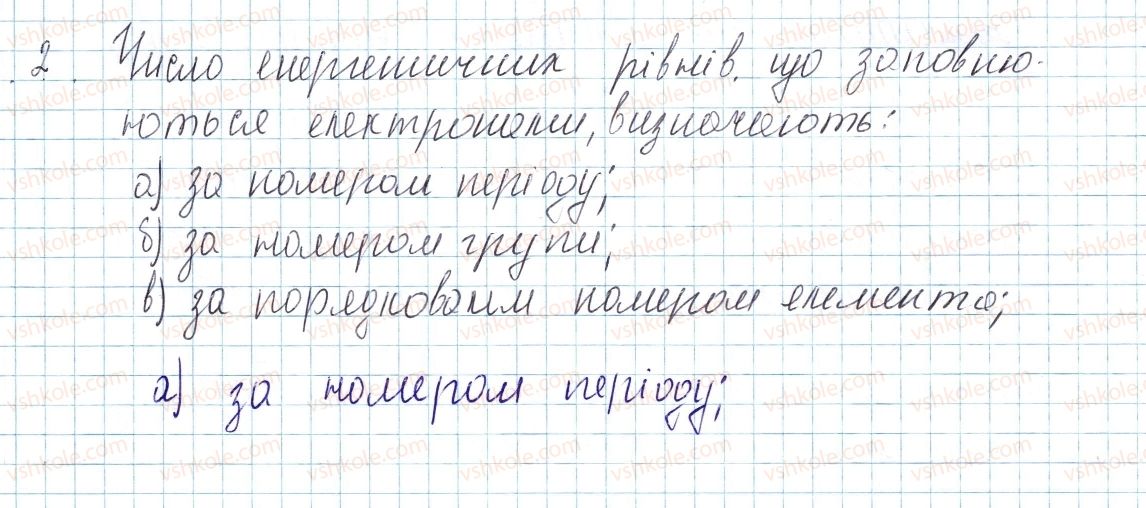 2. Число енергетичних рівнів, що заповню-
ються електронами, визначають:
а) за номером періоду;
б) за номером групи;
в) за порядковим номером елемента;
а) за номером періоду;